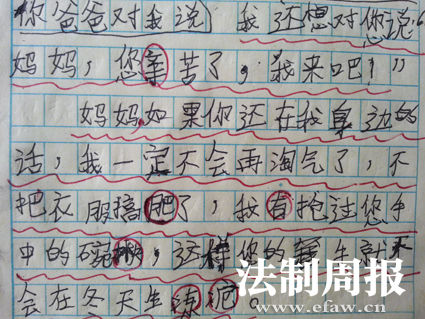 你爸爸对我说 我还想对您说:“
妈妈,您辛苦了,我来吧!”
妈妈,如果你还在我身边的
话,我一定不会再淘气了,不
把衣服搞肥了,我会抱过您手
中的碗,这样你的手就不
会在冬天生冻疮。
法制周报
www.efaw.cn